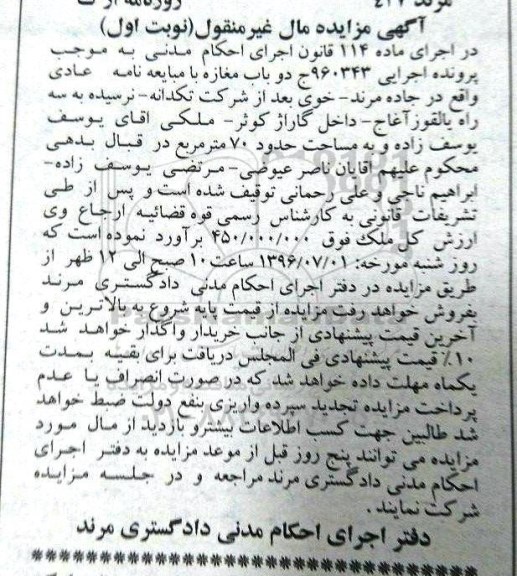 مرند ۴۲۷
روزنامه
آگهی مزایده مال غیرمنقول(نوبت اول)
در اجرای ماده ۱۱۴ قانون اجرای احکام مدنی به موجب
پرونده اجرایی ۹۶۰۳۴۳ج دو باب مغازه با مبایعه نامه عادی
واقع در جاده مرند- خوی بعد از شرکت تکدانه- نرسیده به سه
راه یالقوزآغاج- داخل گاراژ کوثر- ملکی اقای یوسف
یوسف زاده و به مساحت حدود ۷۰ مترمربع در قبال بدهی
محکوم علیهم اقایان ناصر عیوضی- مرتضی یوسف زاده-
ابراهیم ناجی و علی رحمانی توقیف شده است و پس از طی
تشریفات قانونی به کارشناس رسمی قوه قضائیه ارجاع وی
ارزش کل ملک فوق ۴۵۰/۰۰۰/۰۰۰ برآورد نموده است که
روز شنبه مورخه: ۱۳۹۶/۰۷/۰۱ ساعت ۱۰ صبح الی ۱۲ ظهر از
طریق مزایده در دفتر اجرای احکام مدنی دادگستری مرند
بفروش خواهد رفت مزایده از قیمت پایه شروع به بالاترین و
آخرین قیمت پیشنهادی از جانب خریدار واگذار خواهد شد
۱۰٪ قیمت پیشنهادی فی المجلس دریافت برای بقیه بمدت
یکماه مهلت داده خواهد شد که در صورت انصراف یا عدم
پرداخت مزایده تجدید سپرده واریزی بنفع دولت ضبط خواهد
شد طالبین جهت کسب اطلاعات بیشترو بازدید از مال مورد
مزایده می توانند پنج روز قبل از موعد مزایده به دفتر اجرای
احکام مدنی دادگستری مرند مراجعه و در جلسه مزایده
شرکت نمایند.
دفتر اجرای احکام مدنی دادگستری مرند